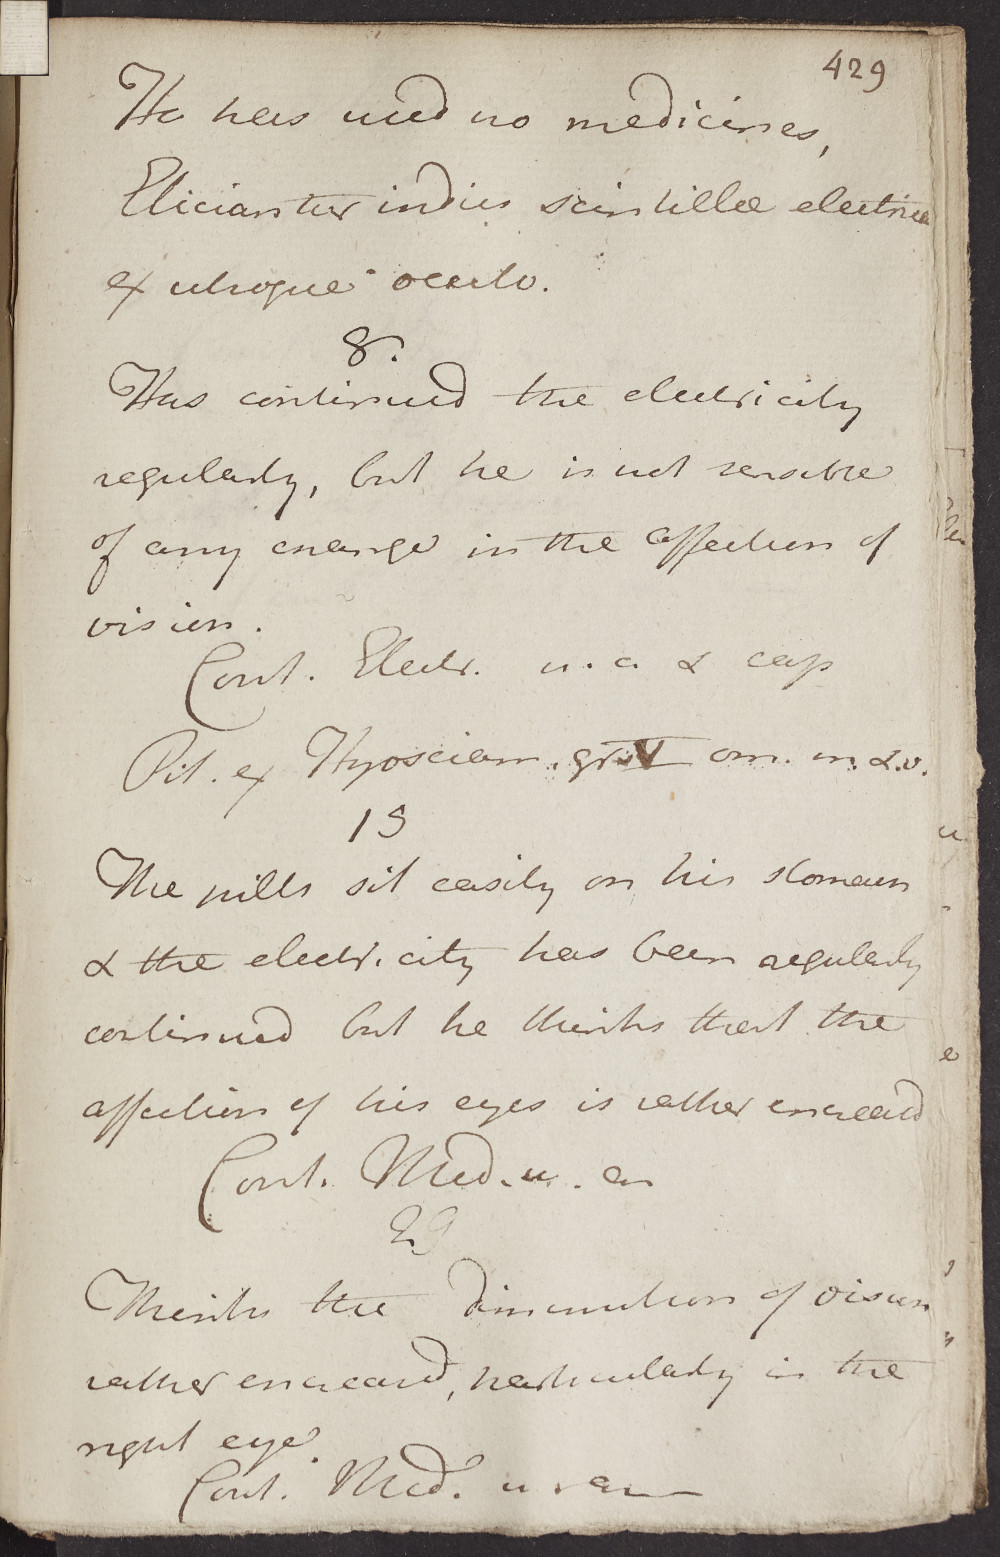 429
He has used no medicines,
Eliciantur indies scintillæ electricæ
ex utroque oculo.
8.
Has continued the electricity
regularly, but he is not sensible
of any change in the affection of
vision.
Cont. Electr. u. a. & cap
Pil. ex Hyosciam. gr. V om. m. & v.
15
The pills sit easily on his stomach
& the electricity has been regularly
continued but he thinks that the
affection of his eyes is rather encreasd
Cont. Med. u. an
29
Thinks the diminution of vision
rather encreased, particularly in the
right eye.
Cont. Med. u